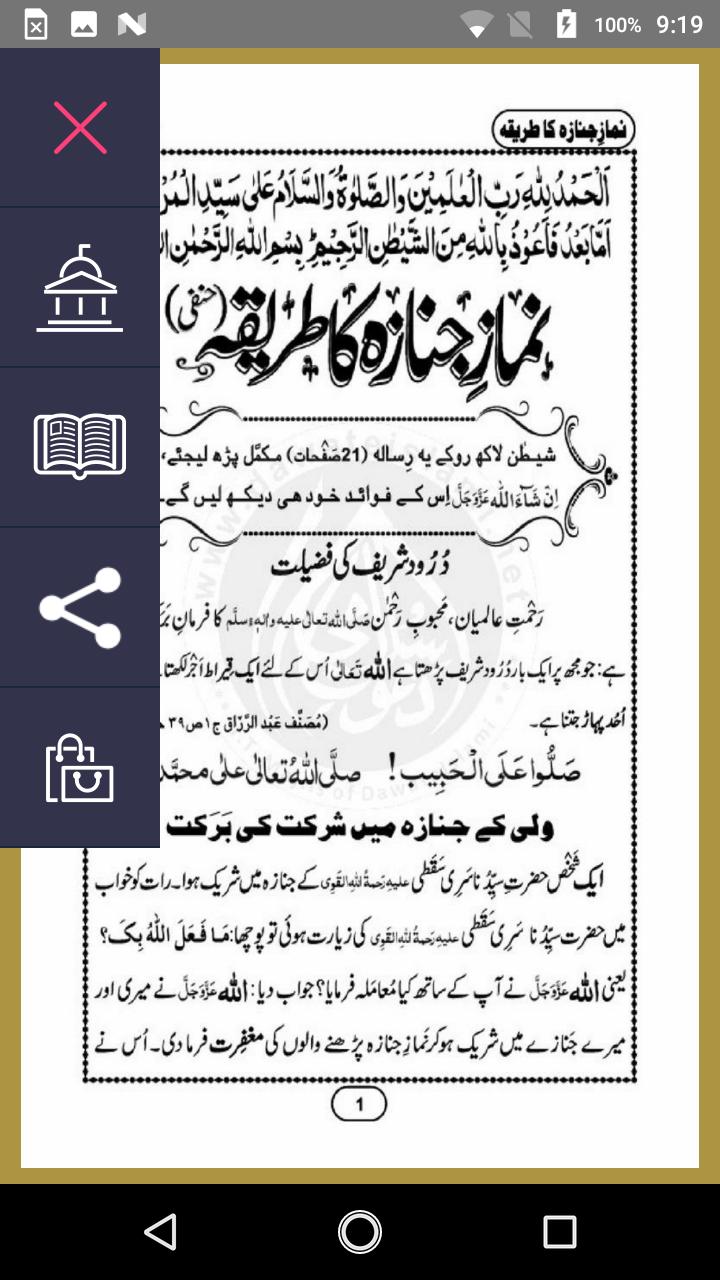 100% 9:19
نمازِ جنازہ کا طریقہ
اَلْحَمْدُ لِلّٰهِ رَبِّ الْعٰلَمِیْنَ وَالصَّلٰوةُ وَالسَّلَامُ عَلٰی سَیِّدِ
اَمَّا بَعْدُ فَاَعُوْذُ بِاللّٰهِ مِنَ الشَّیْطٰنِ الرَّجِیْمِ ؕ بِسْمِ اللّٰهِ الرَّحْمٰنِ
نمازِ جنازہ کا طریقہ (حنفی)
شیطٰن لاکھ روکے یہ رسالہ (21صفحات) مکمَّل پڑھ لیجئے،
اِنْ شَآءَاللّٰه عَزَّوَجَلَّ اِس کے فوائد خود ھی دیکھ لیں گے۔
دُرُود شریف کی فضیلت
رَحْمتِ عالمیان، مَحبوبِ رَحْمٰن صلَّی اللہ تعالٰی علیہ واٰلہٖ وسلَّم کا فرمانِ
ہے: جو مجھ پر ایک بار دُرُود شریف پڑھتا ہے اللہ تَعَالٰی اُس کے لئے ایک قیراط اَجْر لکھتا
اُحُد پہاڑ جتنا ہے۔ (مُصَنَّف عَبْد الرَّزّاق ج۱ص۳۹
صَلُّوْا عَلَی الْحَبِیْب ! صلَّی اللہُ تعالٰی علٰی محمَّد
ولی کے جنازہ میں شرکت کی بَرَکت
ایک شَخْص حضرتِ سیِّدُنا سَرِی سَقَطی علیہ رَحمۃُ اللہِ القَوِی کے جنازہ میں شریک ہوا۔ رات کو خواب
میں حضرت سیِّدُنا سَرِی سَقَطی علیہ رَحمۃُ اللہِ القَوِی کی زیارت ہوئی تو پوچھا: مَا فَعَلَ اللّٰهُ بِکَ؟
یعنی اللہ عَزَّوَجَلَّ نے آپ کے ساتھ کیا مُعامَلہ فرمایا؟ جواب دیا: اللہ عَزَّوَجَلَّ نے میری اور
میرے جَنازے میں شریک ہو کر نَمازِ جنازہ پڑھنے والوں کی مغفِرت فرما دی۔ اُس نے
1